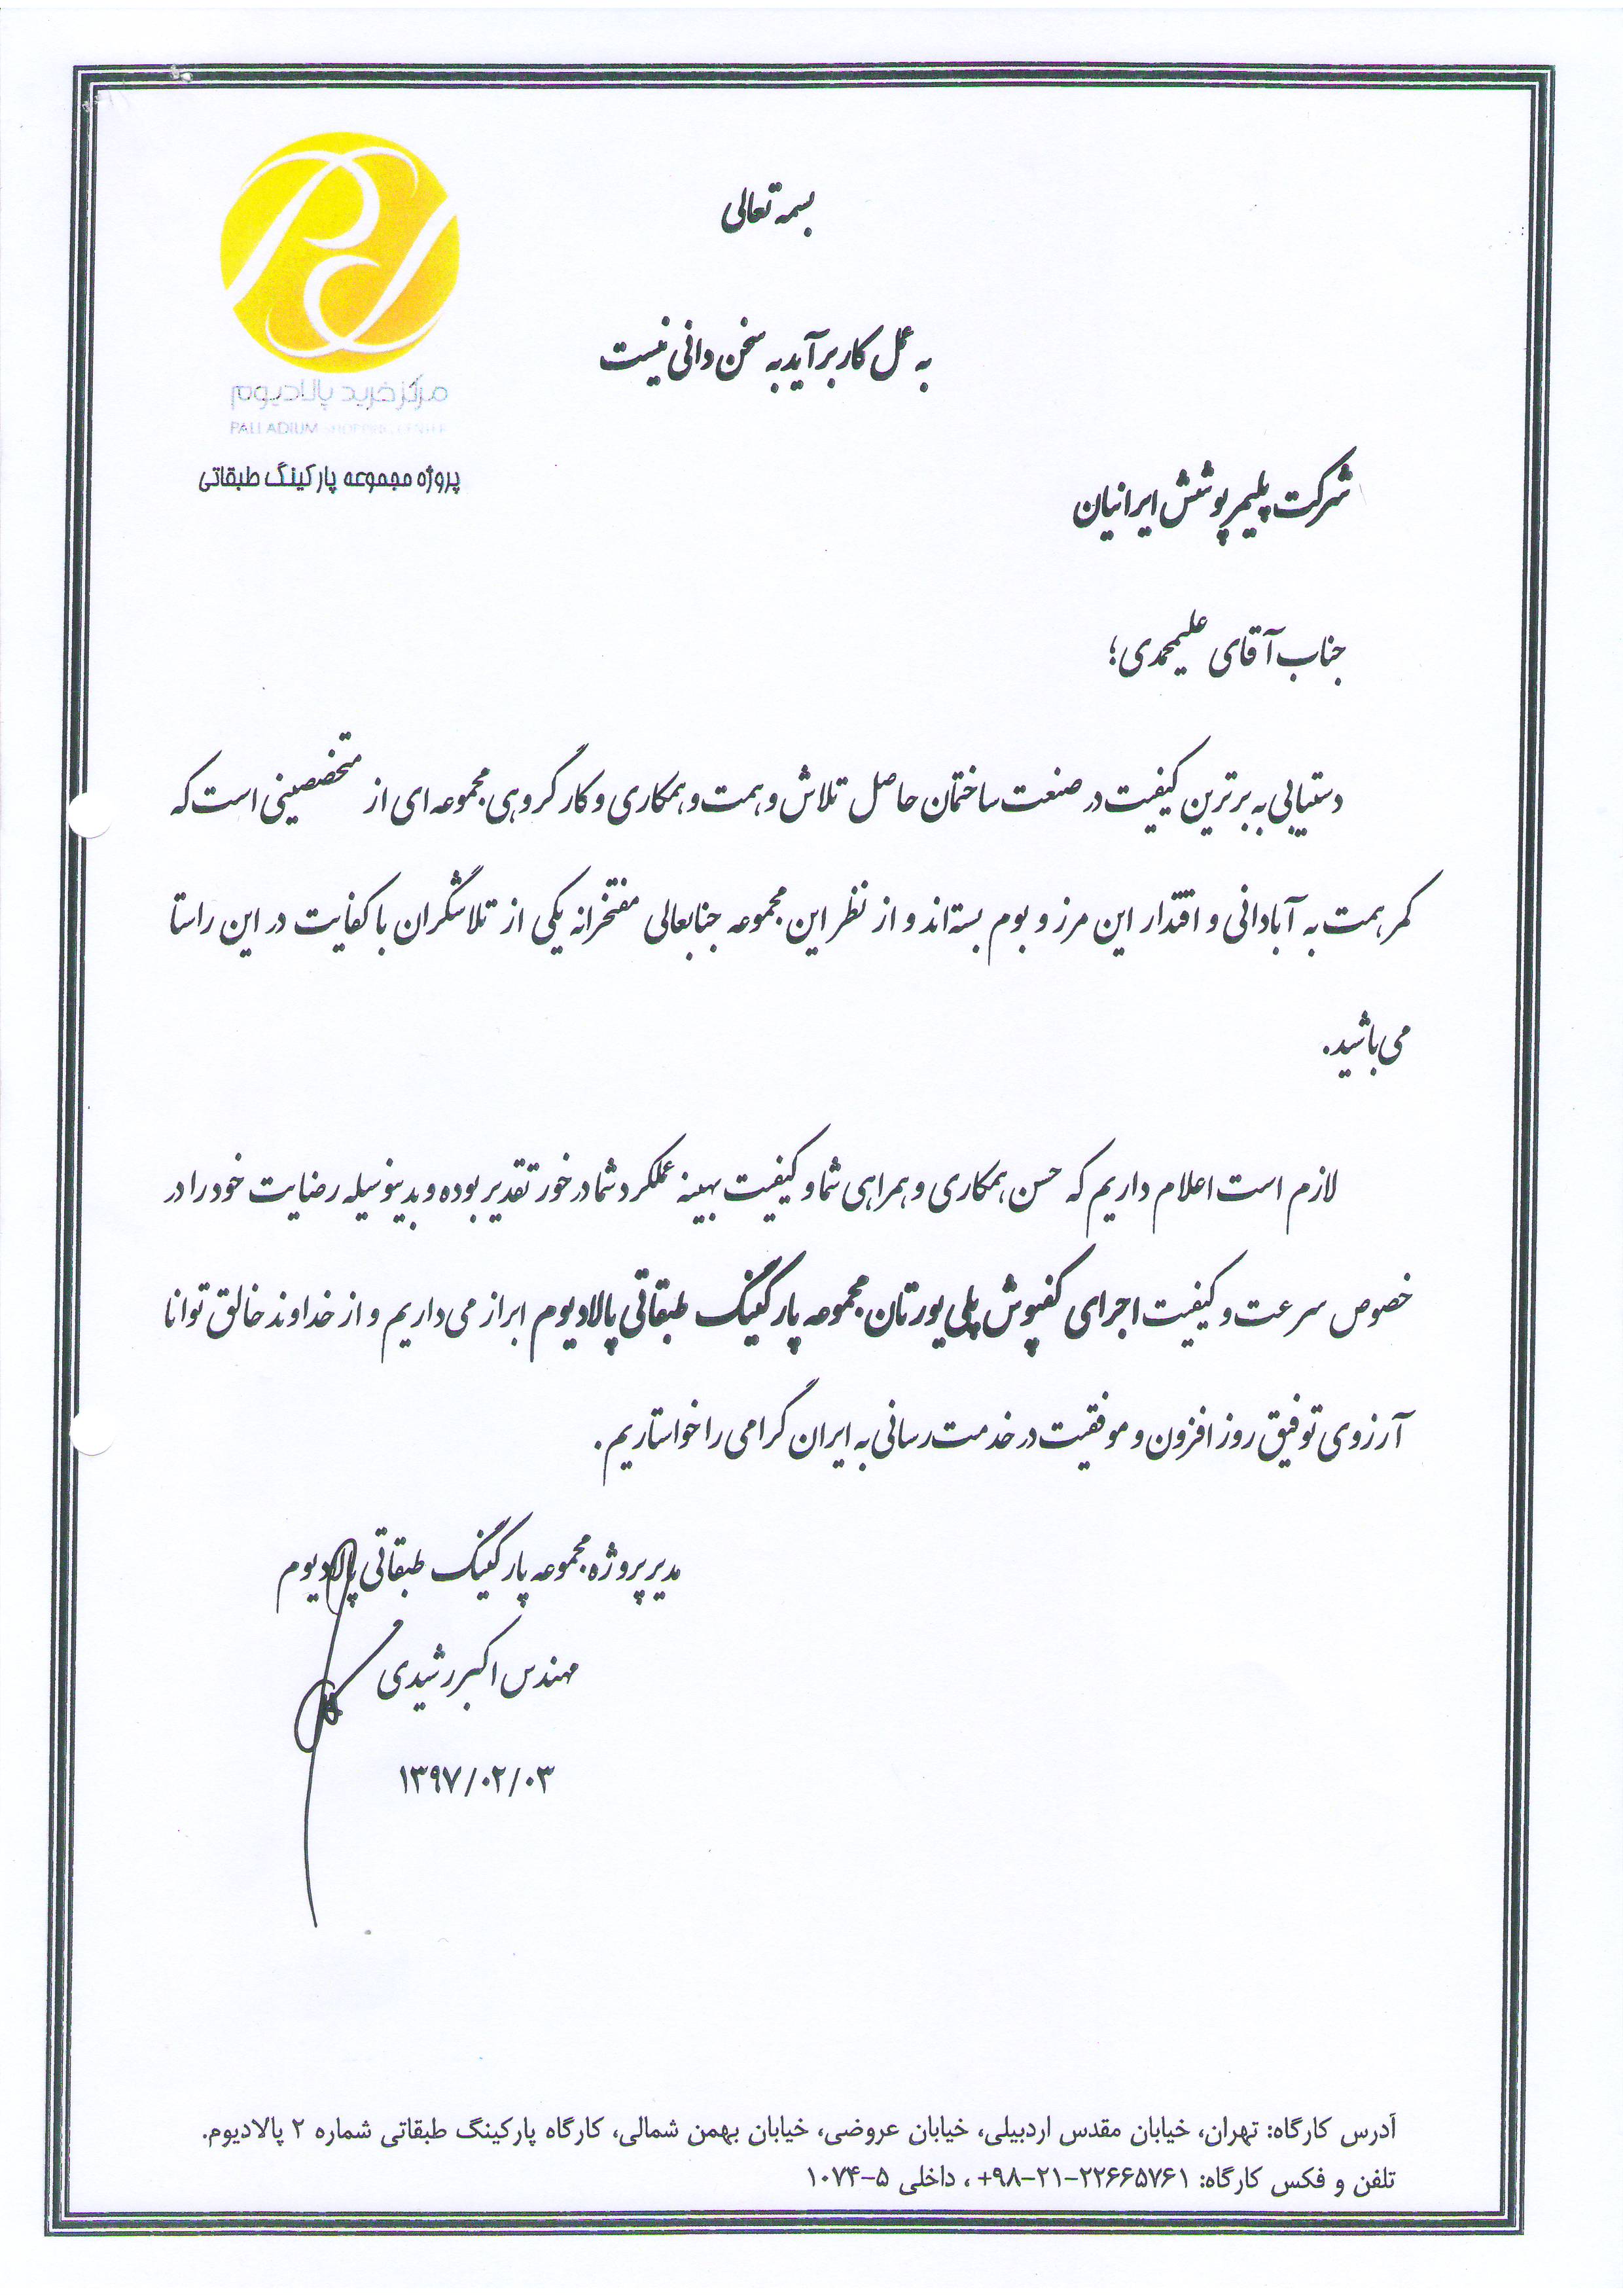 بسمه تعالی
به عمل کار برآید به سخن دانی نیست
مرکز خرید پالادیوم
PALLADIUM SHOPPING CENTER
پروژه مجموعه پارکینگ طبقاتی
شرکت پلیمر پوشش ایرانیان
جناب آقای علیمحمدی؛
دستیابی به برترین کیفیت در صنعت ساختمان حاصل تلاش و همت و همکاری و کار گروهی مجموعه ای از متخصصینی است که
کمر همت به آبادانی و اقتدار این مرز و بوم بسته‌اند و از نظر این مجموعه جنابعالی مفتخرانه یکی از تلاشگران با کفایت در این راستا
می‌باشید.
لازم است اعلام داریم که حسن همکاری و همراهی شما و کیفیت بهینه عملکرد شما در خور تقدیر بوده و بدینوسیله رضایت خود را در
خصوص سرعت و کیفیت اجرای کفپوش پلی یورتان مجموعه پارکینگ طبقاتی پالادیوم ابراز می‌داریم و از خداوند خالق توانا
آرزوی توفیق روز افزون و موفقیت در خدمت رسانی به ایران گرامی را خواستاریم.
مدیر پروژه مجموعه پارکینگ طبقاتی پالادیوم
مهندس اکبر رشیدی
۱۳۹۷/۰۲/۰۳
آدرس کارگاه: تهران، خیابان مقدس اردبیلی، خیابان عروضی، خیابان بهمن شمالی، کارگاه پارکینگ طبقاتی شماره ۲ پالادیوم.
تلفن و فکس کارگاه: ۲۲۶۶۵۷۶۱-۲۱-۹۸+ ، داخلی ۵-۱۰۷۴